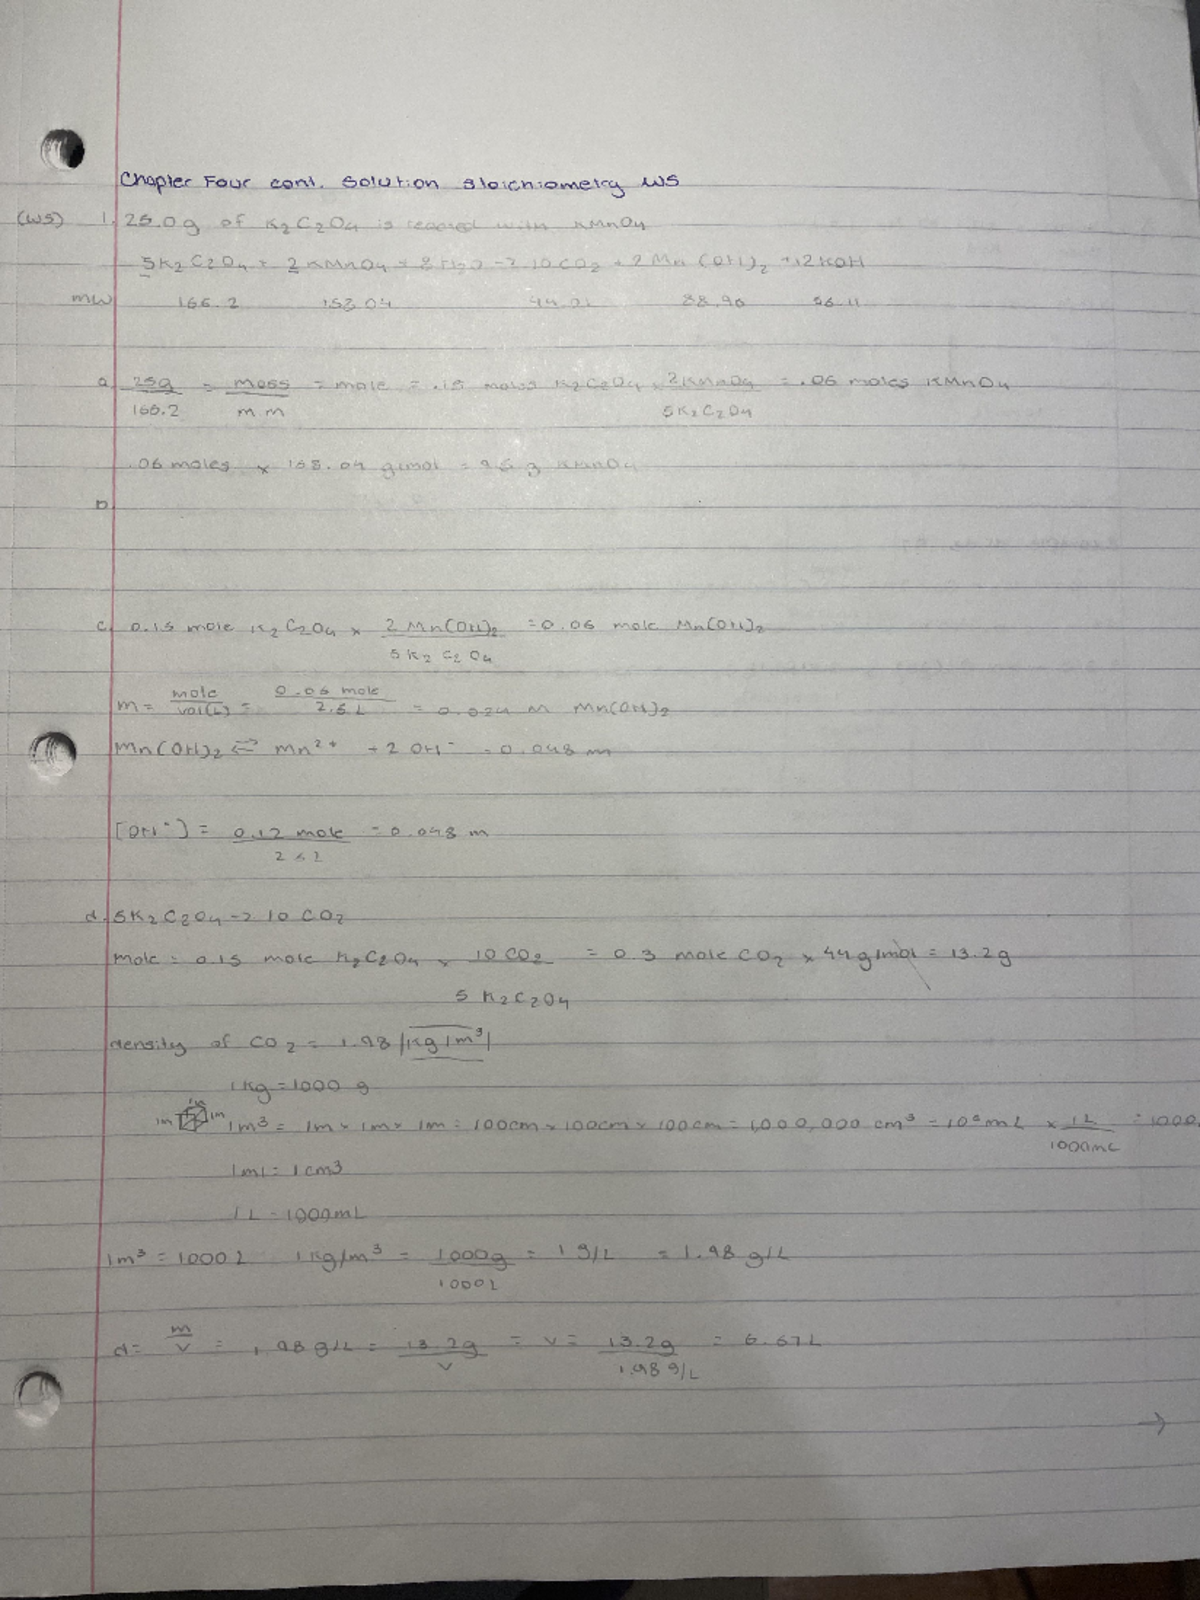 Chapter Four cont. Solution Stoichiometry WS
(WS) 1. 25.0g of K2C2O4 is reacted with KMnO4
5K2C2O4 + 2KMnO4 + 8H2O -> 10CO2 + 2Mn(OH)2 + 12KOH
mw 166.2 158.04 44.01 88.96 56.11
a. 25g/166.2 = mass/m.m = mole = .15 moles K2C2O4 x 2KMnO4/5K2C2O4 = .06 moles KMnO4
.06 moles x 158.04 g/mol = 9.5 g KMnO4
b
c. 0.15 mole K2C2O4 x 2Mn(OH)2/5K2C2O4 = 0.06 mole Mn(OH)2
m = mole/vol(L) = 0.06 mole/2.5L = 0.024 m Mn(OH)2
Mn(OH)2 ⇌ Mn2+ + 2OH- = 0.048 m
[OH-] = 0.12 mole/2.5L = 0.048 m
d. 5K2C2O4 -> 10CO2
mole = 0.15 mole K2C2O4 x 10CO2/5K2C2O4 = 0.3 mole CO2 x 44g/mol = 13.2g
density of CO2 = 1.98 |kg/m³|
1kg = 1000 g
1m 1m 1m 1m³ = 1m x 1m x 1m = 100cm x 100cm x 100cm = 1,000,000 cm³ = 10⁶mL x 1L/1000mL = 1000
1ml = 1cm3
1L = 1000mL
1m³ = 1000L 1kg/m³ = 1000g/1000L = 1g/L = 1.98 g/L
d = m/v = 1.98g/L = 13.2g/v = v = 13.2g/1.98g/L = 6.67L
→